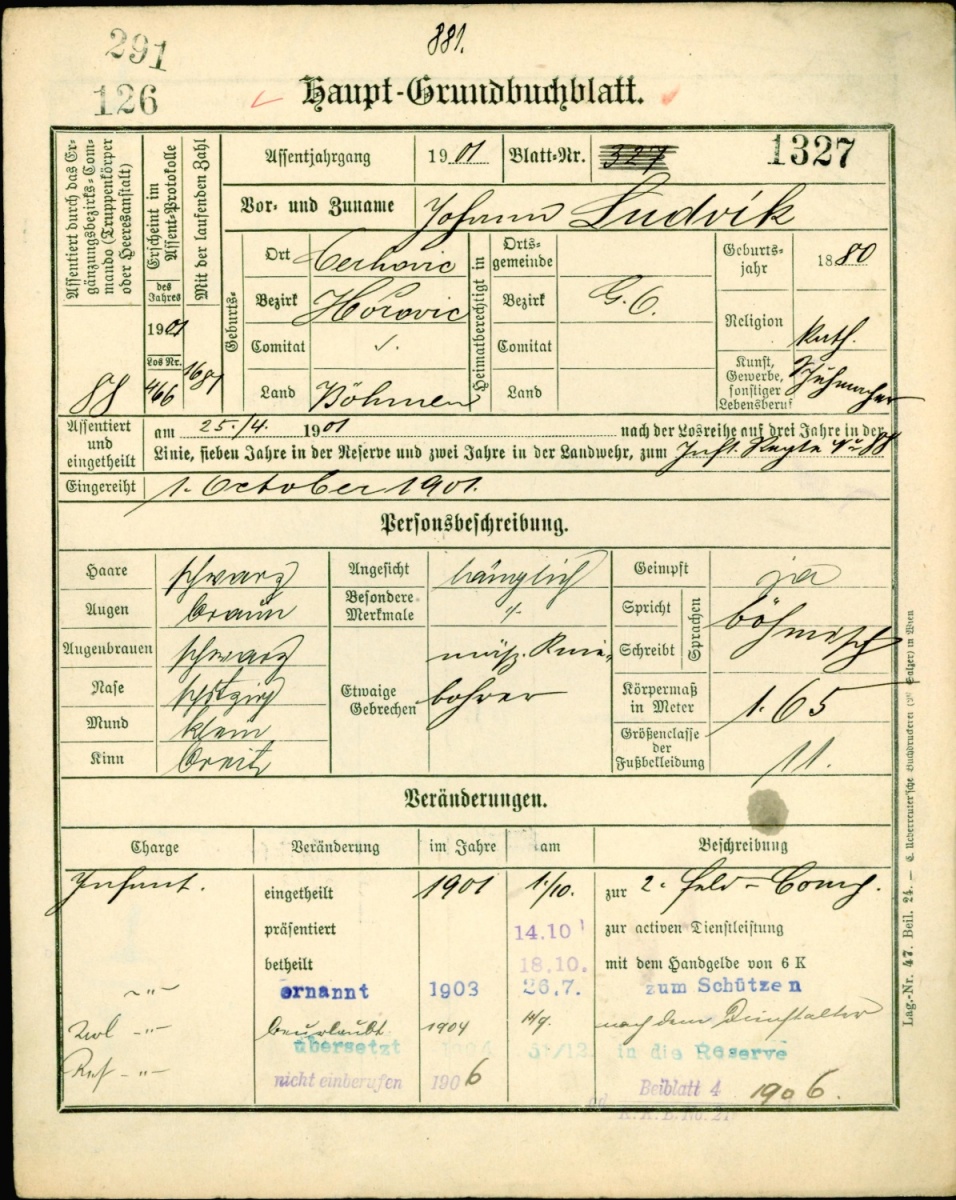 291
881.
126
Haupt-Grundbuchblatt.
Assentiert durch das Ergänzungsbezirks-Commando (Truppenkörper oder Heeresanstalt)
88
Erscheint im Assent-Protokolle
des Jahres
1901
Los Nr.
466
Mit der laufenden Zahl
1681
Assentjahrgang 1901 Blatt-Nr. 327 1327
Vor- und Zuname Johann Ludvík
Geburts-
Ort Cerhovic
Bezirk Hořovic
Comitat ./.
Land Böhmen
Heimatberechtigt in
Ortsgemeinde
Bezirk G.O.
Comitat
Land
Geburtsjahr 1880
Religion kath.
Kunst, Gewerbe, sonstiger Lebensberuf Schuhmacher
Assentiert und eingetheilt
am 25./4. 1901 nach der Losreihe auf drei Jahre in der
Linie, sieben Jahre in der Reserve und zwei Jahre in der Landwehr, zum Inft. Regte Nr 88
Eingereiht 1. October 1901.
Personsbeschreibung.
Haare schwarz
Augen braun
Augenbrauen schwarz
Nase spitzig
Mund klein
Kinn breit
Angesicht länglich
Besondere Merkmale ./.
Etwaige Gebrechen mäß. Kniebohrer
Geimpft ja
Spricht
Schreibt
Sprachen böhmisch
Körpermaß in Meter 1.65
Größenclasse der Fußbekleidung 11.
Veränderungen.
Charge Veränderung im Jahre am Beschreibung
Infant. eingetheilt 1901 1./10. zur 2. Feld-Comp.
präsentiert 14.10 zur activen Dienstleistung
betheilt 18.10. mit dem Handgelde von 6 K
-"- ernannt 1903 26.7. zum Schützen
Url -"- beurlaubt 1904 14/9. nach dem Dienstalter
übersetzt 1904 31/12 in die Reserve
Res -"- nicht einberufen 1906 Beiblatt 4 1906.
Lag.-Nr. 47. Beil. 24. — C. Ueberreuter'sche Buchdruckerei (M. Salzer) in Wien